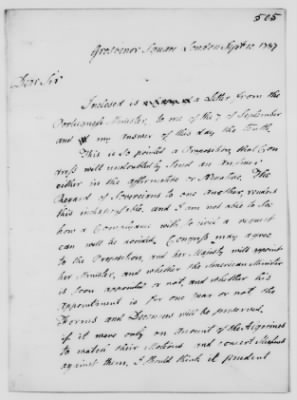 505
Grosvenor Square London Sept. 10. 1787
Dear Sir
Inclosed is a Letter from the
Portuguese Minister, to me of the 7. of September
and my answer of this day the Tenth.
This is so pointed a Proposition, that Con
gress will undoubtedly send an Answer,
either in the affirmative or Negative. The
Regard of Sovereigns to one Another, renders
this indispensible, and I am not able to see
how a Compliance with so civil a request
can will be avoided. Congress may agree
to the Proposition, and her Majesty will appoint
her Minister, and whether the American Minister
is soon appointed or not, and whether his
appointment is for one year or not the
Forms and Decorum will be preserved,
if it were only on Account of the Algerines
to watch their Motions and concert Measures
against them, I should think it prudent